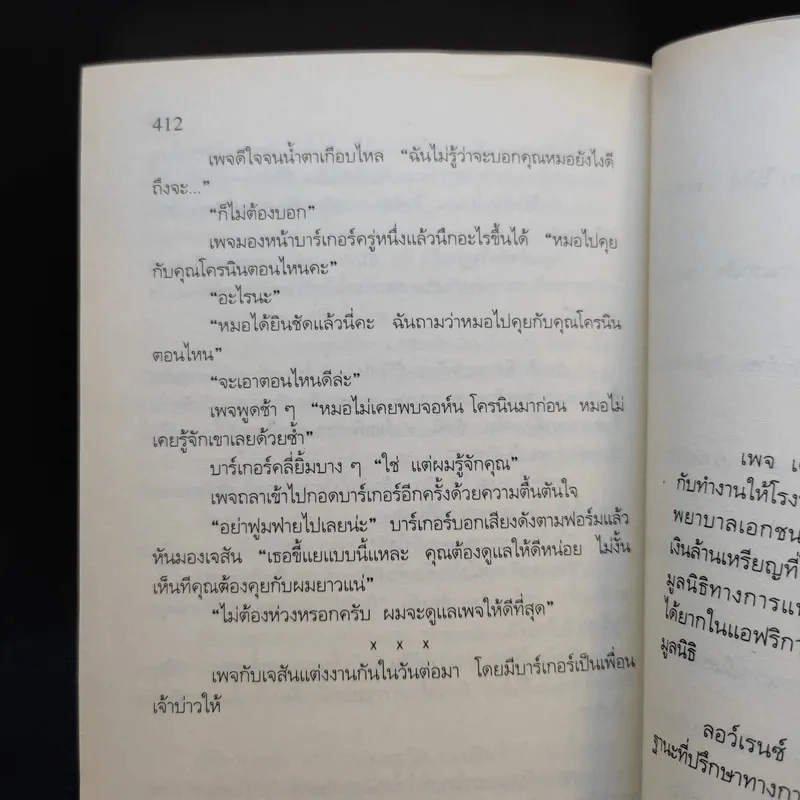 412
เพจดีใจจนน้ำตาเกือบไหล “ฉันไม่รู้ว่าจะบอกคุณหมอยังไงดี
ถึงจะ...”
“ก็ไม่ต้องบอก”
เพจมองหน้าบาร์เกอร์ครู่หนึ่งแล้วนึกอะไรขึ้นได้ “หมอไปคุย
กับคุณโครนินตอนไหนคะ”
“อะไรนะ”
“หมอได้ยินชัดแล้วนี่คะ ฉันถามว่าหมอไปคุยกับคุณโครนิน
ตอนไหน”
“จะเอาตอนไหนดีล่ะ”
เพจพูดช้า ๆ “หมอไม่เคยพบจอห์น โครนินมาก่อน หมอไม่
เคยรู้จักเขาเลยด้วยซ้ำ”
บาร์เกอร์คลี่ยิ้มบาง ๆ “ใช่ แต่ผมรู้จักคุณ”
เพจถลาเข้าไปกอดบาร์เกอร์อีกครั้งด้วยความตื้นตันใจ
“อย่าฟูมฟายไปเลยน่ะ” บาร์เกอร์บอกเสียงดังตามฟอร์มแล้ว
หันมองเจสัน “เธอขี้แยแบบนี้แหละ คุณต้องดูแลให้ดีหน่อย ไม่งั้น
เห็นทีคุณต้องคุยกับผมยาวแน่”
“ไม่ต้องห่วงหรอกครับ ผมจะดูแลเพจให้ดีที่สุด”
x x x
เพจกับเจสันแต่งงานกันในวันต่อมา โดยมีบาร์เกอร์เป็นเพื่อน
เจ้าบ่าวให้
เพจ
กับทำงานให้โรงพ
พยาบาลเอกชน
เงินล้านเหรียญที่
มูลนิธิทางการแพ
ได้ยากในแอฟริกา
มูลนิธิ
ลอว์เรนซ์
ฐานะที่ปรึกษาทางกา